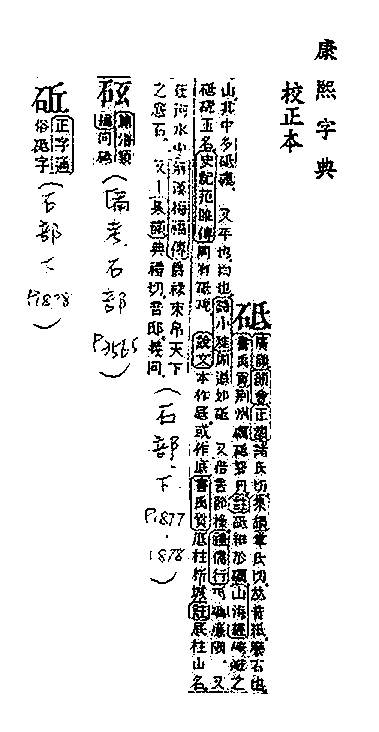 康熙字典
校正本
砥
廣韻韻會正韻諸氏切集韻掌氏切𠀤音紙磨石也
書禹貢荆州礪砥砮丹註砥細於礪山海經崦嵫之
山其中多砥礪 又平也均也詩小雅周道如砥 又借苦節操禮儒行砥礪廉隅 又
砥砨玉名史記范睢傳周有砥砨 說文本作厎或作底書禹貢厎柱析城註厎柱山名
在河水中前漢梅福傳爵祿束帛天下
之底石 又典禮切音邸義同
(石部.下 P.1877-1878)
同砥
(備考石部 P.3565)
正字通
俗砥字
(石部下 P.1878)